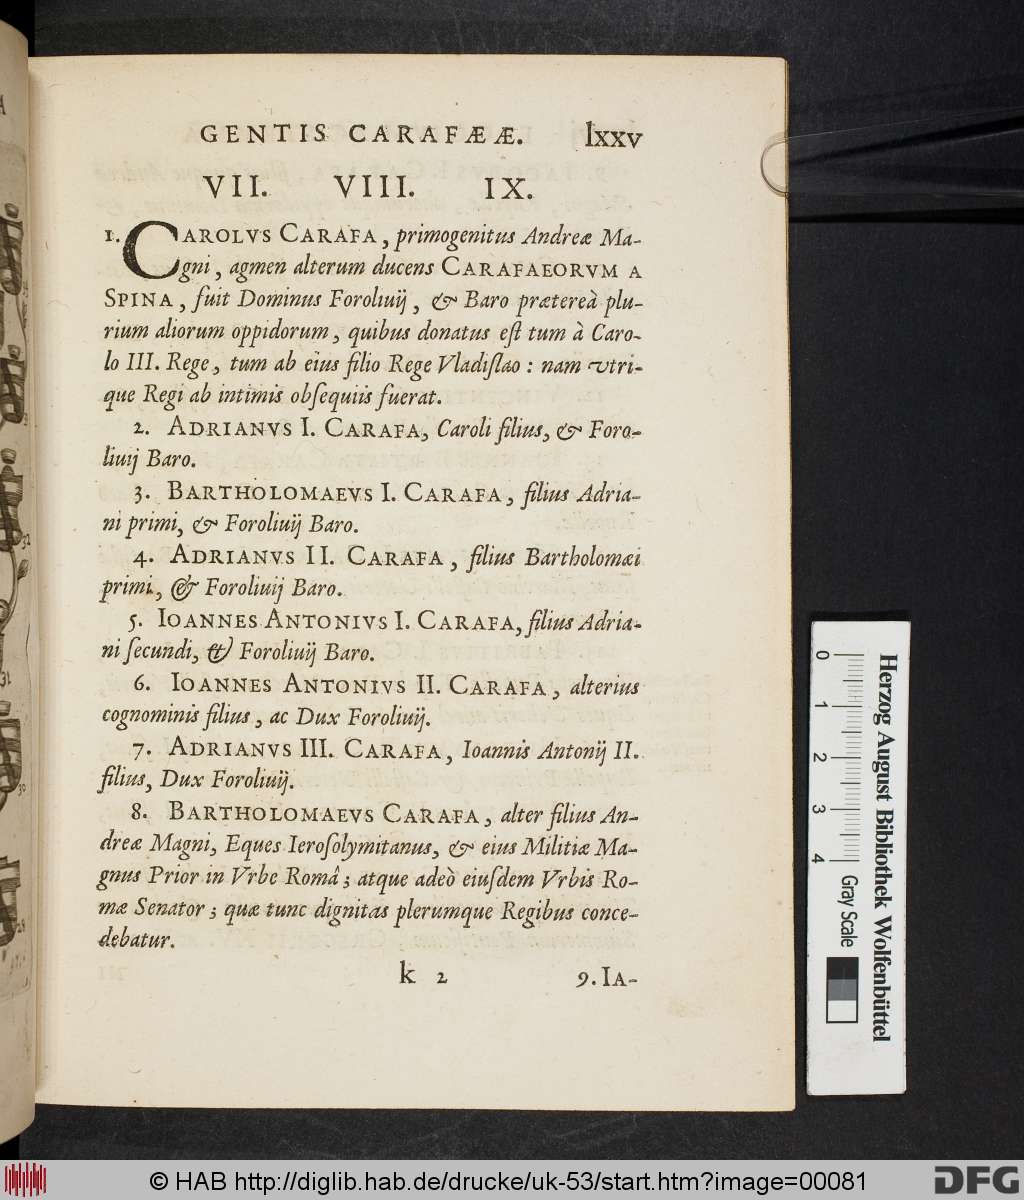 GENTIS CARAFÆÆ. lxxv
VII. VIII. IX.
1. CAROLVS CARAFA, primogenitus Andreæ Ma-
gni, agmen alterum ducens CARAFAEORVM A
SPINA, fuit Dominus Foroliuij, & Baro prætereà plu-
rium aliorum oppidorum, quibus donatus eſt tum à Caro-
lo III. Rege, tum ab eius filio Rege Vladiſlao : nam vtri-
que Regi ab intimis obſequiis fuerat.
2. ADRIANVS I. CARAFA, Caroli filius, & Foro-
liuij Baro.
3. BARTHOLOMAEVS I. CARAFA, filius Adria-
ni primi, & Foroliuij Baro.
4. ADRIANVS II. CARAFA, filius Bartholomæi
primi, & Foroliuij Baro.
5. IOANNES ANTONIVS I. CARAFA, filius Adria-
ni ſecundi, & Foroliuij Baro.
6. IOANNES ANTONIVS II. CARAFA, alterius
cognominis filius, ac Dux Foroliuij.
7. ADRIANVS III. CARAFA, Ioannis Antonij II.
filius, Dux Foroliuij.
8. BARTHOLOMAEVS CARAFA, alter filius An-
dreæ Magni, Eques Ieroſolymitanus, & eius Militiæ Ma-
gnus Prior in Vrbe Româ; atque adeò eiuſdem Vrbis Ro-
mæ Senator; quæ tunc dignitas plerumque Regibus conce-
debatur.
k 2 9. IA-
0 1 2 3 4 Gray Scale
Herzog August Bibliothek Wolfenbüttel
32
31
30
28
© HAB http://diglib.hab.de/drucke/uk-53/start.htm?image=00081
DFG